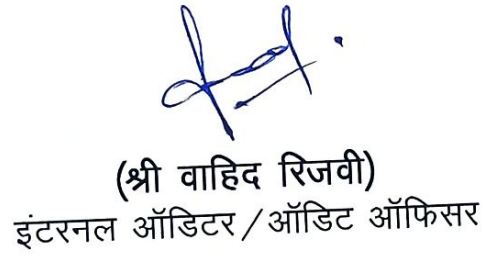 (श्री वाहिद रिजवी)
इंटरनल ऑडिटर / ऑडिट ऑफिसर